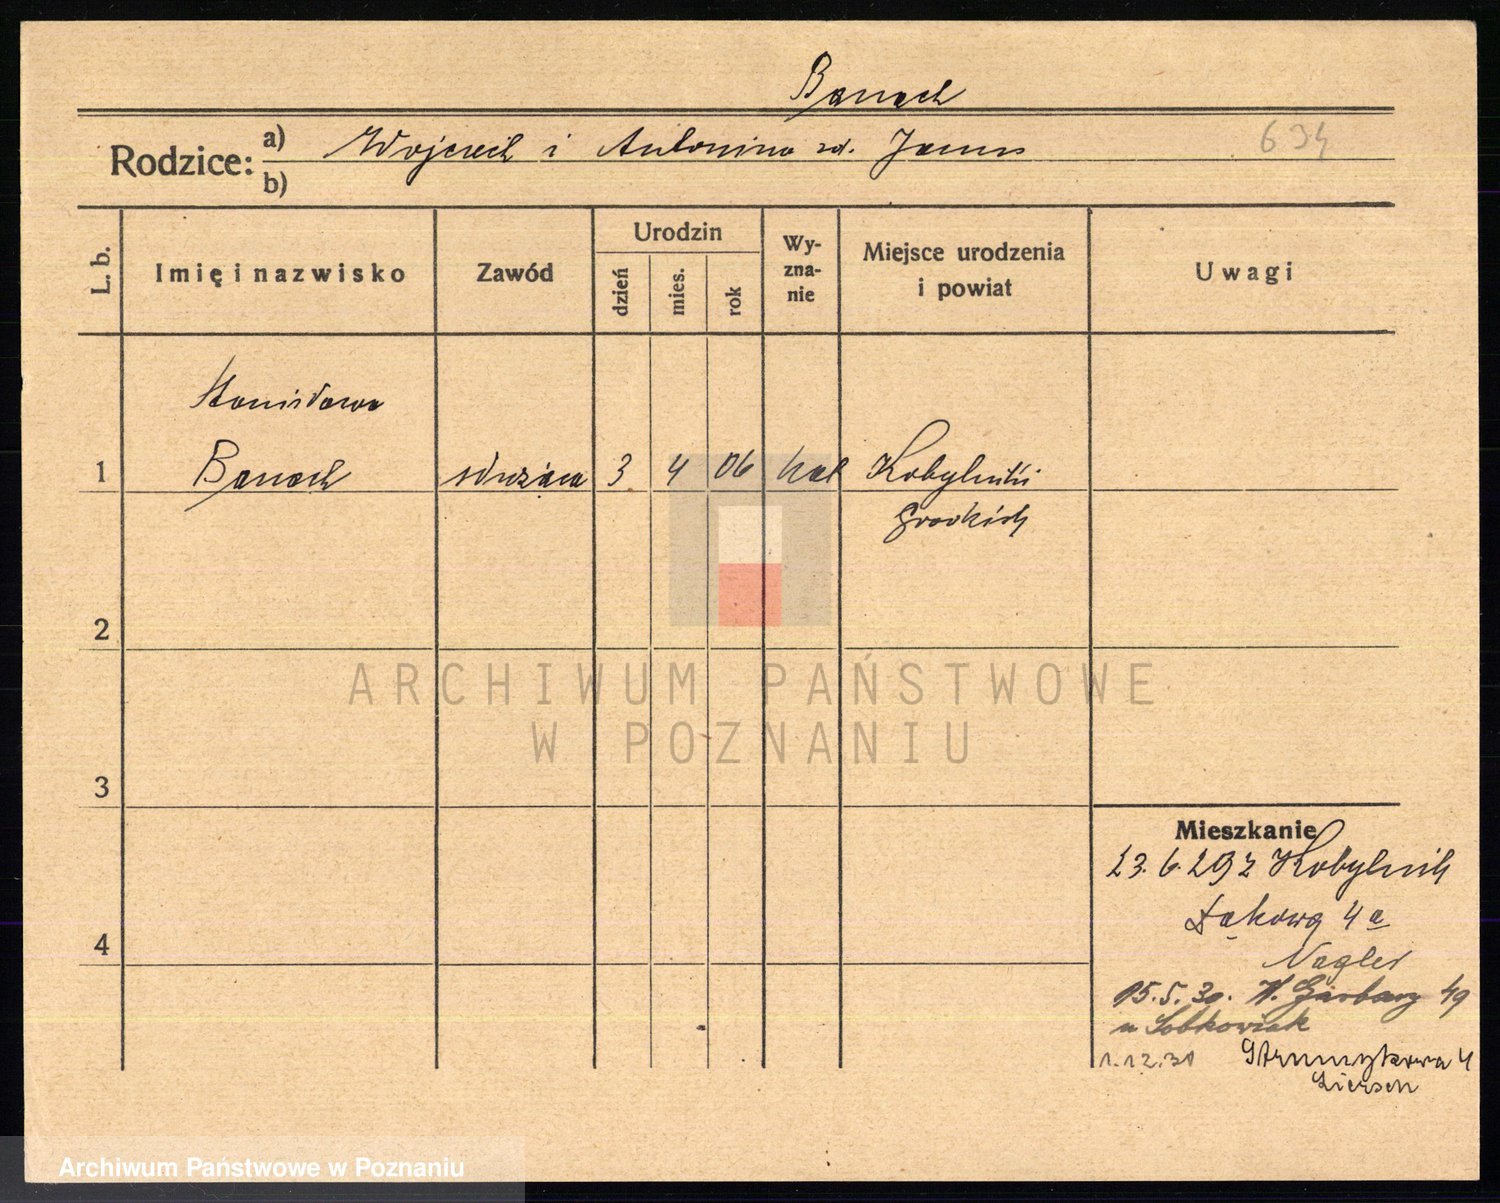 Banach
Rodzice: a) Wojciech i Antonina zd. Janus
b)
634
L. b.
Imię i nazwisko
Zawód
Urodzin
dzień
mies.
rok
Wy-
zna-
nie
Miejsce urodzenia
i powiat
Uwagi
Stanisława
1 Banach służąca 3 4 06 kat Kobylniki
Grodzisk
2
ARCHIWUM PAŃSTWOWE
W POZNANIU
3
4
Mieszkanie
23.6.29 z Kobylnik
Łąkowa 4a
Nagler
15.5.30. W. Garbary 49
u Sobkowiak
1.12.30 Strumykowa 4
Archiwum Państwowe w Poznaniu